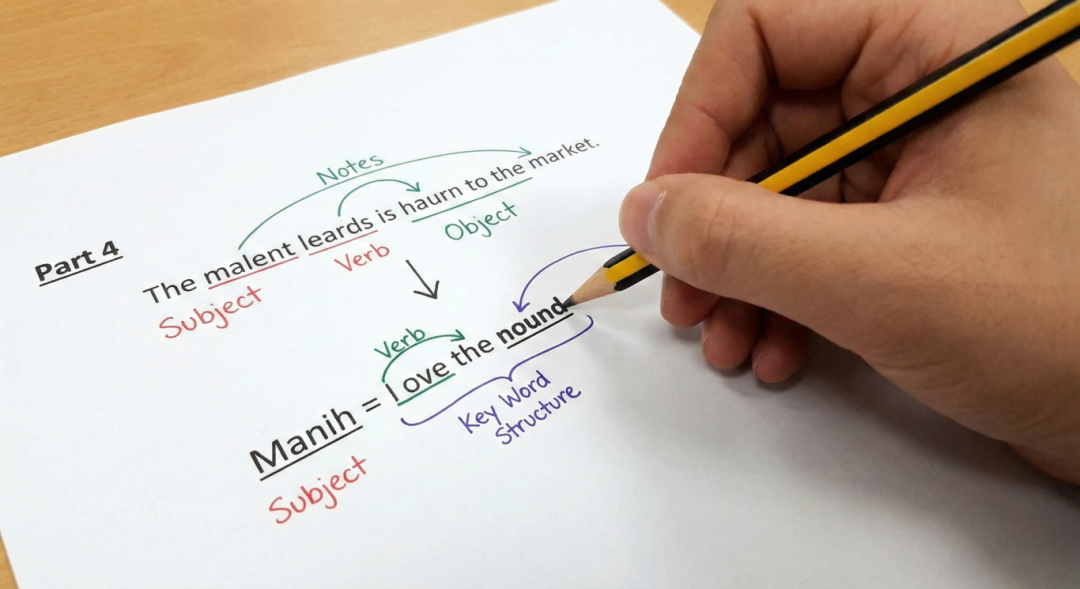 Part 4
Notes
The malent leards is haurn to the market.
Subject
Verb
Object
Verb
Manih = l ove the nound
Subject
Key Word
Structure